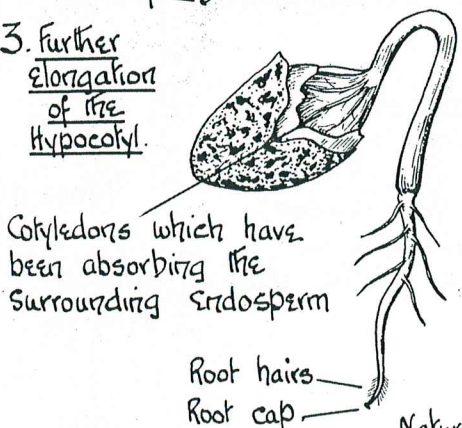 3. Further
Elongation
of the
Hypocotyl.
Cotyledons which have
been absorbing the
surrounding Endosperm
Root hairs
Root cap